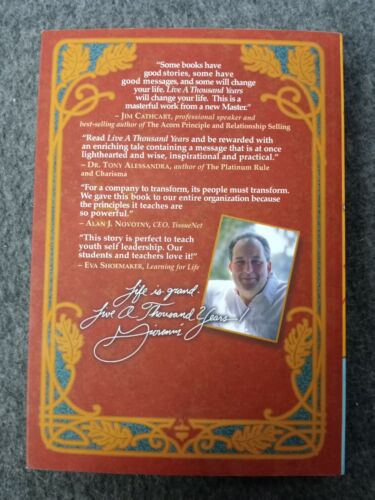 “Some books have
good stories, some have
good messages, and some will change
your life. Live A Thousand Years
will change your life.  This is a
masterful work from a new Master.”
– Jim Cathcart, professional speaker and
best-selling author of The Acorn Principle and Relationship Selling
“Read Live A Thousand Years and be rewarded with
an enriching tale containing a message that is at once
lighthearted and wise, inspirational and practical.”
– Dr. Tony Alessandra, author of The Platinum Rule
and Charisma
“For a company to transform, its people must transform.
We gave this book to our entire organization because
the principles it teaches are
so powerful.”
– Alan J. Novotny, CEO, TissueNet
“This story is perfect to teach
youth self leadership. Our
students and teachers love it!”
– Eva Shoemaker, Learning for Life
Life is grand.
Live A Thousand Years!
Giovanni